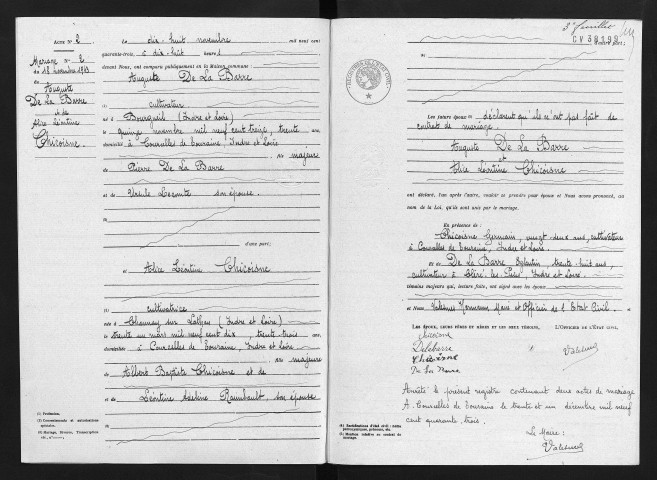 ACTE N° 2
Mariage N° 2
du 18 novembre 1943
de
Auguste
De La Barre
et de
Alice Léontine
Chicoisne.
Le dix-huit novembre mil neuf cent
quarante-trois, à dix-huit heures
devant Nous, ont comparu publiquement en la Maison commune :
Auguste De La Barre
(1) cultivateur
né à Bourgueil (Indre et Loire)
le quinze novembre mil neuf cent treize, trente ans,
domicilié à Courcelles de Touraine, Indre et Loire
fils majeur
de Pierre De La Barre
et de Ursule Lecomte son épouse.
d'une part;
et Alice Léontine Chicoisne
(1) cultivatrice
née à Channay sur Lathan (Indre et Loire)
le trente un mars mil neuf cent dix trente-trois ans,
domiciliée à Courcelles de Touraine, Indre et Loire
majeure
de Albert Baptiste Chicoisne et de
et de Léontine Adeline Raimbault, son épouse
(1) Profession.
(2) Consentements et autorisations spéciales.
(3) Mariage, Divorce, Transcription etc., s'il y a lieu.
3e feuillet
CV 38192
d'autre part;
Les futurs époux déclarent qu'ils n'ont pas fait de
contrat de mariage.
Auguste De La Barre
et
Alice Léontine Chicoisne
ont déclaré, l'un après l'autre, vouloir se prendre pour époux et Nous avons prononcé, au
nom de la Loi, qu'ils sont unis par le mariage.
En présence de :
Chicoisne Germain, vingt-deux ans, cultivateur
à Courcelles de Touraine, Indre et Loire.
Et de De La Barre trente huit ans,
cultivateur à Cléré les Pins, Indre et Loire.
témoins majeurs qui, lecture faite, ont signé avec les époux
et Nous Maire et Officier de l'Etat Civil.
LES ÉPOUX, LEURS PÈRES ET MÈRES ET LES DEUX TÉMOINS,
L'OFFICIER DE L'ÉTAT CIVIL,
Chicoisne
Delabarre
Chicoisne
De La Barre
Arrêté le présent registre contenant deux actes de mariage
A Courcelles de Touraine le trente et un décembre mil neuf
cent quarante trois.
Le Maire :